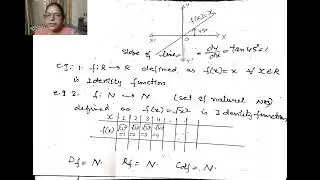 f(x)=x
y
45°
x' o x
y'
slope of line = dy/dx = tan45°=1
e.g: 1. f: R → R defined as f(x)=x ∀ x∈R
is Identity function
e.g 2. f: N → N (set of natural nos)
defined as f(x)=√x² is Identity function
x 1 2 3 4 . . .
f(x) √1² =1 √2² =2 √3² =3 √4² =4 . . .
Df = N. Rf = N. Codf = N.